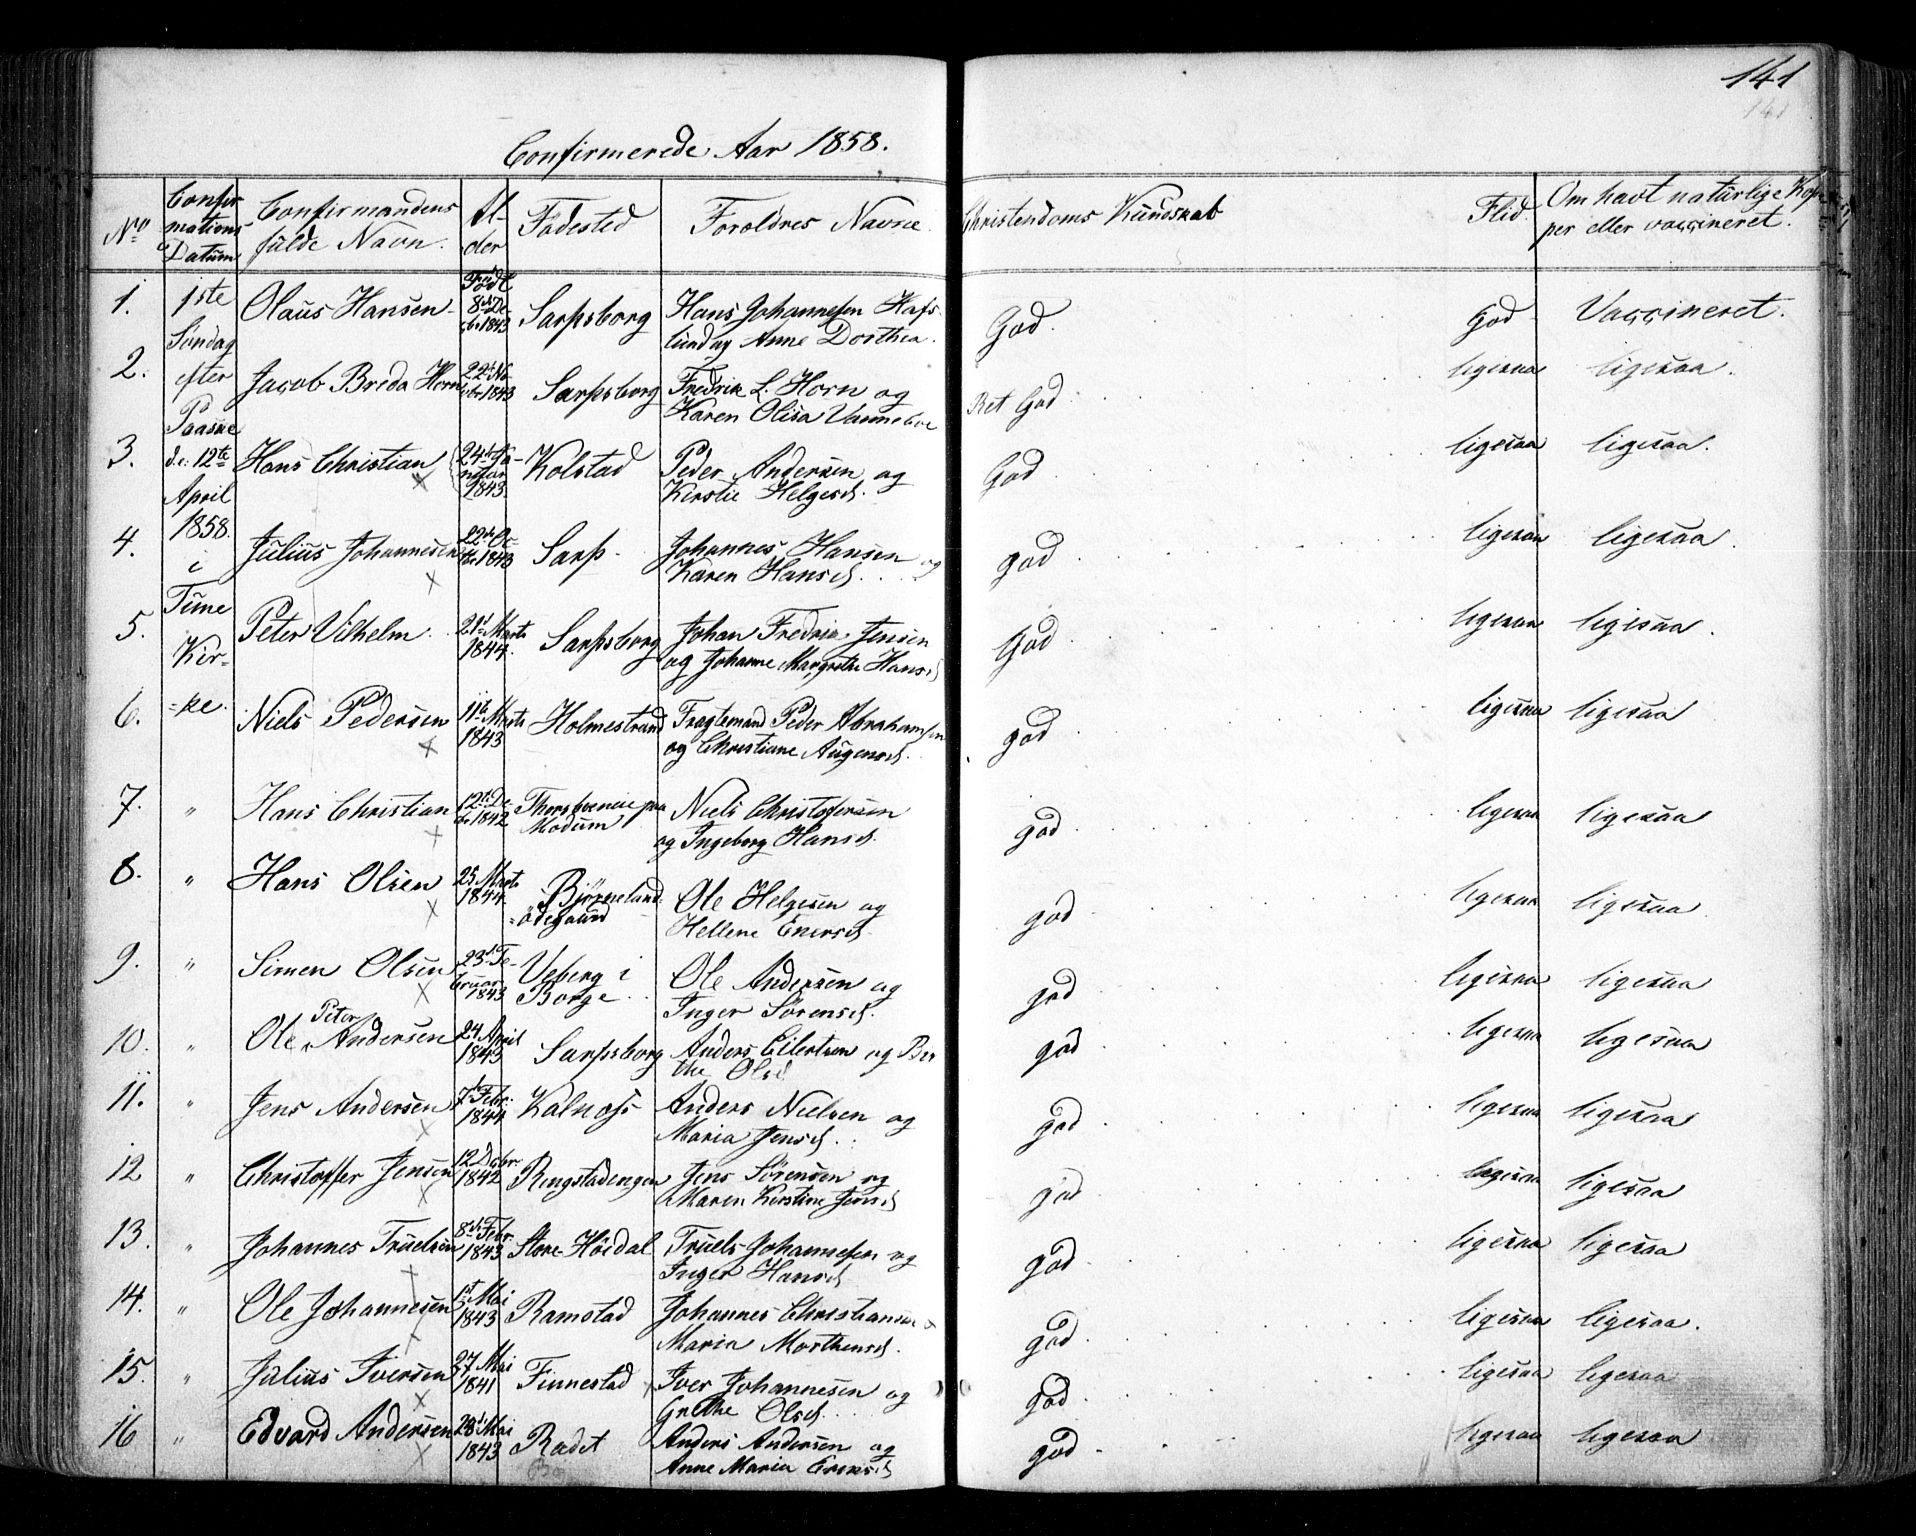 141
141
Confirmerede Aar 1858.
No Confirmations Datum Confirmandens fulde Navn. Alder Fødested Forældres Navne. Christendoms Kundskab Flid. Om havt naturlige Kopper eller vaccineret.
1. 1ste Søndag efter Paaske d.e. 12te April 1858. i Tune Kirke. Olaus Hansen Født 8de Decbr 1843 Sarpsborg Hans Johannesen Hafslund og Anne Dorthea. God. God Vaccineret.
2. Jacob Breda Horn 22de Novbr 1843 Sarpsborg Fredrik L. Horn og Karen Olisa Ret God ligesaa ligesaa.
3. Hans Christian 24de Januar 1843 Kolstad Peder Andersen og Kirstie Helgesd. God ligesaa ligesaa.
4. Julius Johannesen 22de 1843 Sarp. Johannes Hansen og Karen Hansd. god ligesaa ligesaa.
5. Peter Vilhelm 21de Marts 1844. Sarpsborg Johan Fredrik Jensen og Johanne Margrethe Hansd God ligesaa ligesaa.
6. Niels Pedersen 11te Marts 1843 Holmestrand Fragtemand Peder Abrahamsen og Christiane Augensd. god ligesaa ligesaa
7. " Hans Christian 12te Decbr 1842 paa Modum Niels Christofersen og Ingeborg Hansd. god ligesaa ligesaa
8. " Hans Olsen 25 Marts 1844. Bjørneland ødegaard Ole Helgesen og Hellene Enersd. god ligesaa ligesaa
9. " Simen Olsen 23de Februar 1843 Veberg i Borge Ole Andersen og Inger Sørensd. god ligesaa ligesaa
10. " Ole Peter Andersen 24 April 1843 Sarpsborg Anders Eilertsen og Berthe Olsd god ligesaa ligesaa
11. " Jens Andersen 7de Febr. 1844 Kalnæs Anders Nielsen og Maria Jensd. god ligesaa ligesaa
12 " Christoffer Jensen 12 Decbr 1842 Ringstadengen Jens Sørensen og Maren Kirstine Jensd god ligesaa ligesaa
13. " Johannes Truelsen 8de Febr. 1843 Store Høidal Truels Johannesen og Inger Hansd god ligesaa ligesaa
14. " Ole Johannesen 1st Mai 1843 Ramstad Johannes Christiansen & Maria Morthensd. god ligesaa ligesaa.
15. " Julius Iversen 27 Mai 1841 Finnestad Iver Johannesen og Grethe Olsd. god ligesaa ligesaa
16 " Edvard Andersen 28de Mai 1843 Rødet Anders Andersen og Anne Maria Eriksd god ligesaa ligesaa